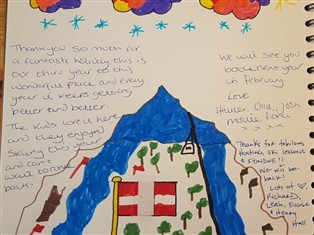 Thankyou so much for
a fantastic holiday this is
Our third year to this
wonderful place and every
year it keeps getting
better and better.
The kids love it here
and they enjoyed
Skiing this year
and can't
wait to come
back.
We will see you
next year
in February
Love
Ollie, Josh
x x x x
Thanks for fabulous
Hosting, Ski lessons
& FONDUE!!
We will be
back!
Lots of
Richard,
Leah, Eloise
& Henry
Hall